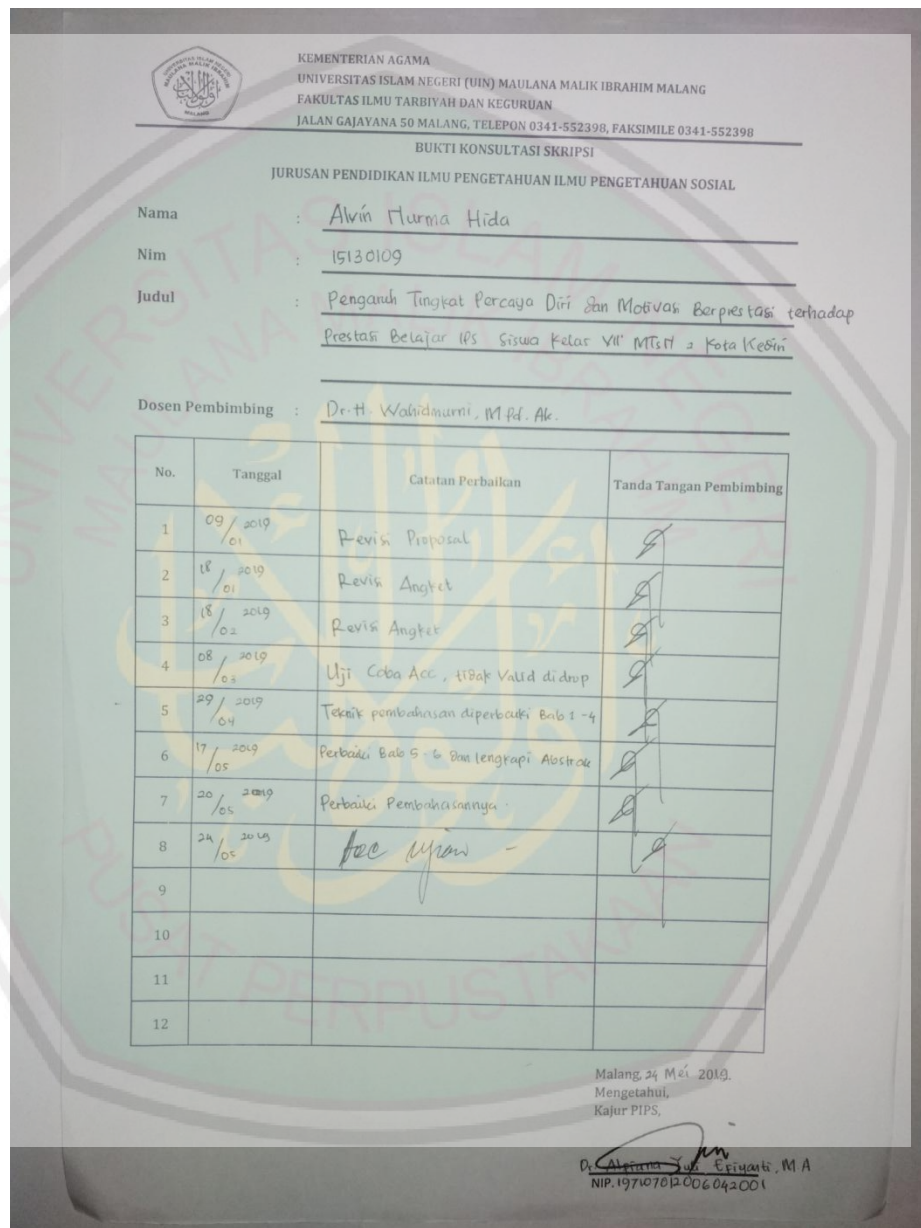 KEMENTERIAN AGAMA
UNIVERSITAS ISLAM NEGERI (UIN) MAULANA MALIK IBRAHIM MALANG
FAKULTAS ILMU TARBIYAH DAN KEGURUAN
JALAN GAJAYANA 50 MALANG, TELEPON 0341-552398, FAKSIMILE 0341-552398
BUKTI KONSULTASI SKRIPSI
JURUSAN PENDIDIKAN ILMU PENGETAHUAN ILMU PENGETAHUAN SOSIAL
Nama : Alvin Nurma Hida
Nim : 15130109
Judul : Pengaruh Tingkat Percaya Diri dan Motivasi Berprestasi terhadap
Prestasi Belajar IPS Siswa Kelas VII MTsN 2 Kota Kediri
Dosen Pembimbing : Dr. H. Wahidmurni, M Pd. Ak.
No. Tanggal Catatan Perbaikan Tanda Tangan Pembimbing
1 09/01 2019 Revisi Proposal
2 18/01 2019 Revisi Angket
3 18/02 2019 Revisi Angket
4 08/03 2019 Uji Coba Acc, tidak Valid didrop
5 29/04 2019 Teknik pembahasan diperbaiki Bab 1-4
6 17/05 2019 Perbaiki Bab 5-6 dan lengkapi Abstrak
7 20/05 2019 Perbaiki Pembahasannya.
8 24/05 2019 Acc ujian -
9
10
11
12
Malang, 24 Mei 2019.
Mengetahui,
Kajur PIPS,
Dr. Alfiana Yuli Efiyanti, M.A
NIP. 197107012006042001
UNIVERSITAS ISLAM NEGERI
MAULANA MALIK IBRAHIM
PUSAT PERPUSTAKAAN